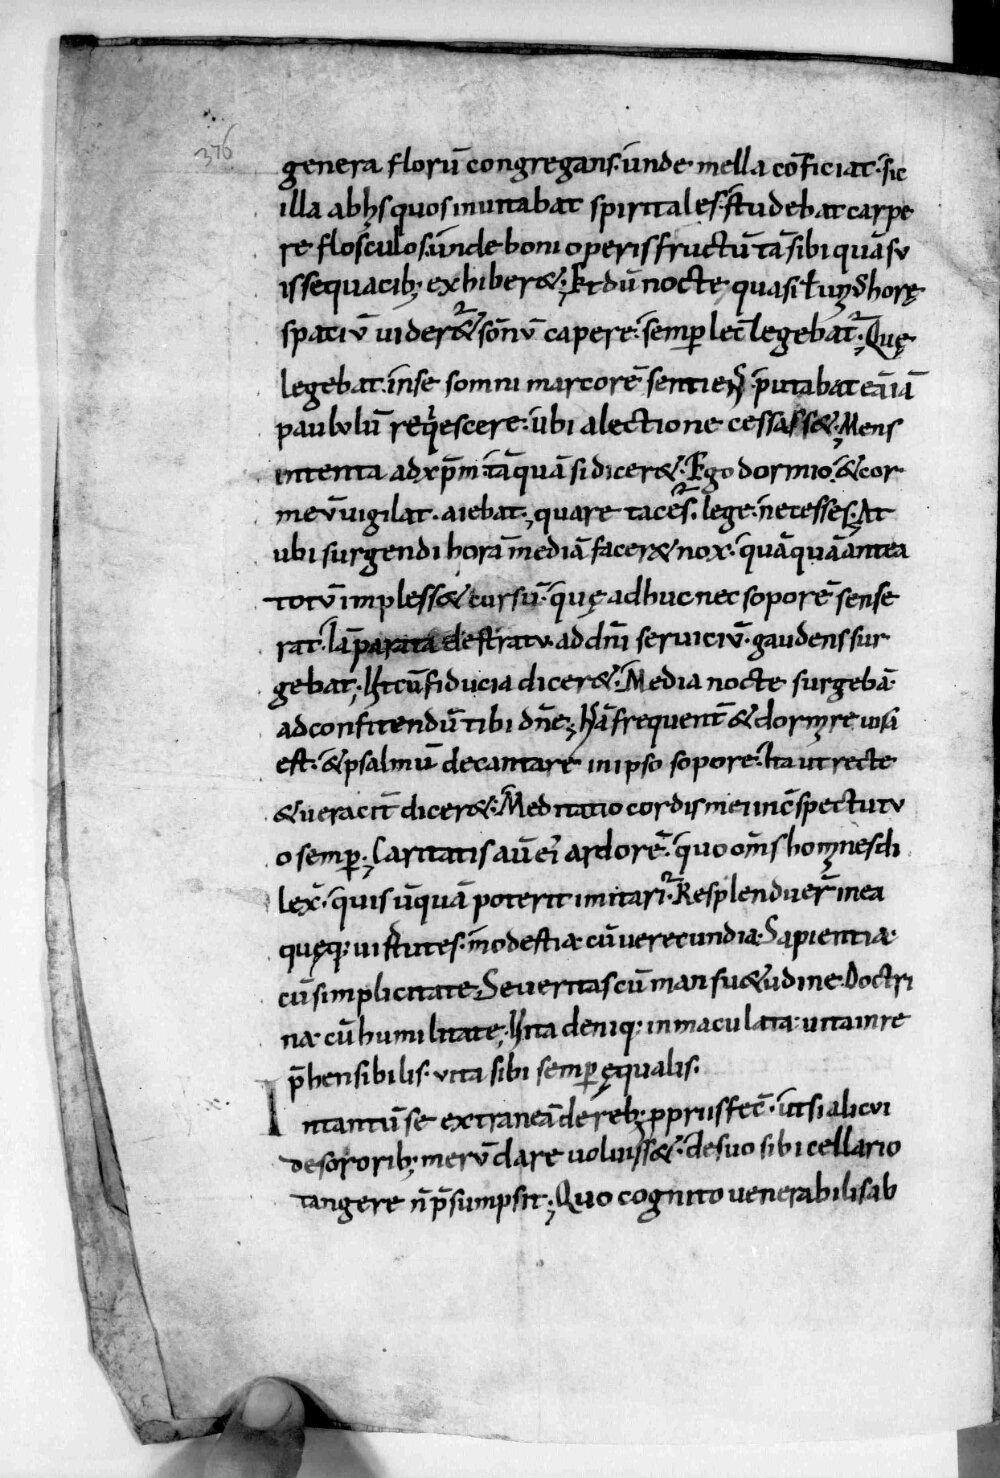 376
genera florū congregans· unde mella cōficiat· sic
illa ab hįs quos inuitabat spiritales· studebat carpe
re flosculos· unde boni operis fructū tā sibi quā su
is sequacib; exhiber&; Et dū nocte quasi
spatiū uider& sōnū capere· semp lec̄ legebat· Quę
legebat· inse somni marcorē sentiens· putabat eā iā
paululū reqiescere· ubi alectione cessass&; Mens
intenta ad xp̄m· tāquā si dicer&· Ego dormio· & cor
meū uigilat· aiebat; quare taces· lege· ne cesses; At
ubi surgendi horā mediā facer& nox· quāquā antea
totū impless& cursū· quę adhuc nec soporē sense
rat· lā parata destratu ad dn̄i seruiciū· gaudens sur
gebat; Ut cū fiducia dicer&· Media nocte surgebā·
ad confitendū tibi dn̄e; Nā frequent̄ & dormįre uisa
est· & psalmū decantare inipso sopore· Ita ut recte
& ueracit̄ dicer&· Meditatio cordis mei inc̄spectu tu
o semp; Caritatis aū ei ardorē· quo om̄s homįnes di
lex̄· quis ūquā poterit imitari· Resplenduer̄ inea
quęq; uirtutes· modestiæ cū uerecundia· Sapientiæ·
cū simplicitate· Seueritas cū mansu&udine· Doctri
næ cū humilitate; Uita deniq; inmaculata· uita inre
p̄hensibilis· uita sibi semp ęqualis·
Intantū se extraneā de reb; p̱priis fec̄· ut si alicui
de sororib; merū dare uoluiss&· de suo sibi cellario
tangere n̄ p̄sumpsit; Quo cognito uenerabilis ab